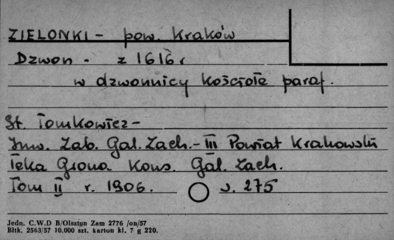 ZIELONKI - pow. Kraków
Dzwon - z 1616 r
w dzwonnicy kościoła paraf.
St. Tomkowicz -
Inw. Zab. Gal. Zach. - III Powiat Krakowski
Teka Grona Kons. Gal. Zach.
Tom II r. 1906. s. 275
Jedn. C.W.D B/Olsztyn Zam 2776 /on/57
Bltk. 2563/57 10.000 szt. karton kl. 7 g 220.